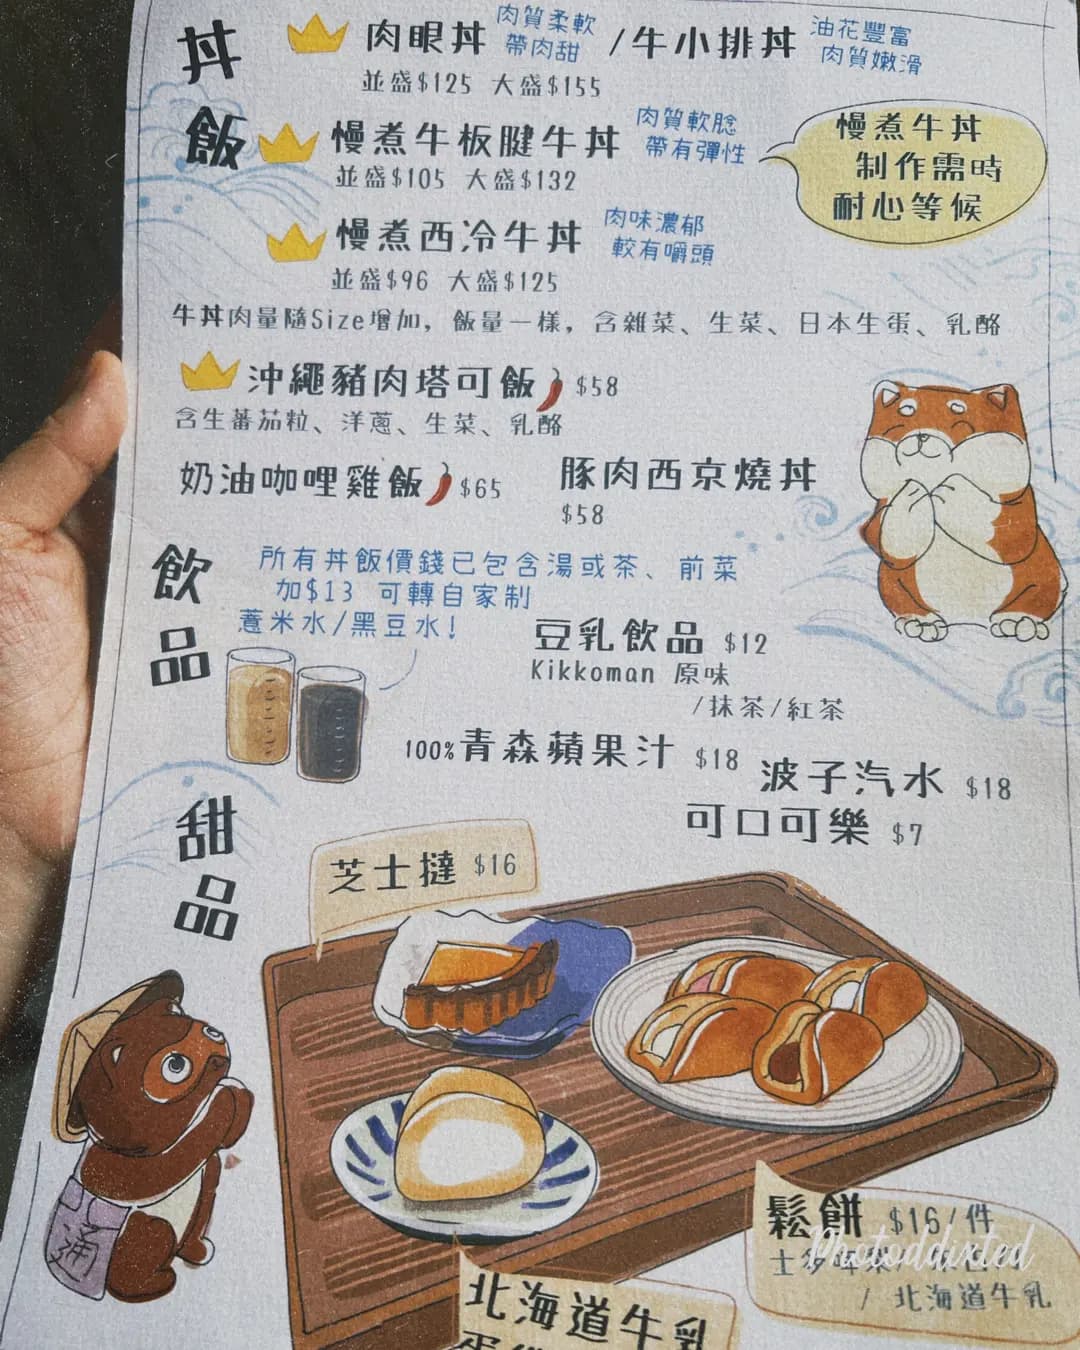 丼飯
肉眼丼 肉質柔軟 帶肉甜 /牛小排丼 油花豐富 肉質嫩滑
並盛$125 大盛$155
慢煮牛板腱牛丼 肉質軟腍 帶有彈性
並盛$105 大盛$132
慢煮牛丼
制作需時
耐心等候
慢煮西冷牛丼 肉味濃郁 較有嚼頭
並盛$96 大盛$125
牛丼肉量隨Size增加，飯量一樣，含雜菜、生菜、日本生蛋、乳酪
沖繩豬肉塔可飯 $58
含生蕃茄粒、洋蔥、生菜、乳酪
奶油咖哩雞飯 $65
豚肉西京燒丼
$58
飲品
所有丼飯價錢已包含湯或茶、前菜
加$13 可轉自家制
薏米水/黑豆水!
豆乳飲品 $12
Kikkoman 原味
/抹茶/紅茶
100%青森蘋果汁 $18
波子汽水 $18
可口可樂 $7
甜品
芝士撻 $16
鬆餅 $16/件
士多啤梨
/ 北海道牛乳
北海道牛乳
通
Photoddixted